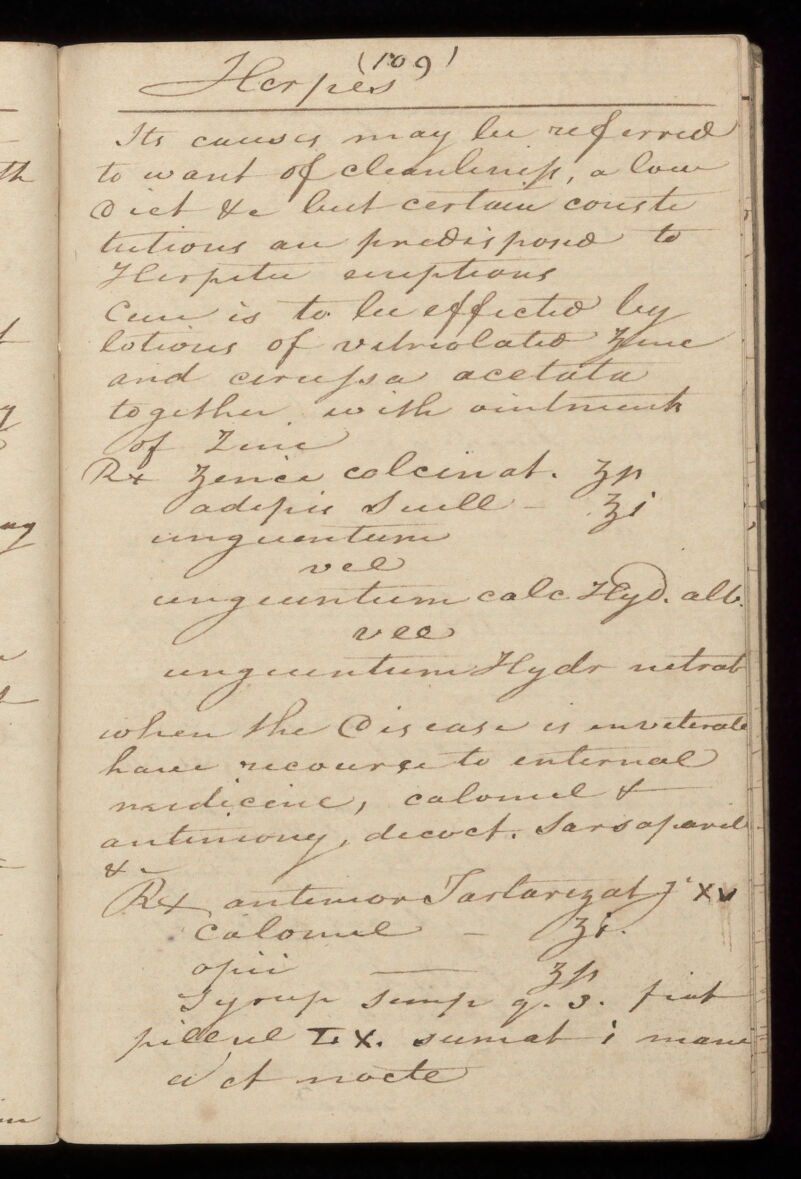 (109)
Herpes
Its causes may be referred
to want of cleanliness, a low
diet &c but certain consti
tutions are predisposed to
Herpetic eruptions
Cure is to be effected by
lotions of vitriolated Zinc
and cerussa acetata
together with ointment
of Zinc
Rx Zinci calcinat. ʒss
adipis Suill - ℥i
unguentum
vel
unguentum calc Hyd. alb.
vel
unguentum Hydr nitrat
when the Disease is inveterate
have recourse to internal
medicine, calomel &
antimony, decoct. Sarsaparil
&c
Rx antimon Tartarizat gr xv
Calomel - ʒi.
opii — ʒss
Syrup simp q. s. fiat
pillul LX. sumat i mane
et nocte